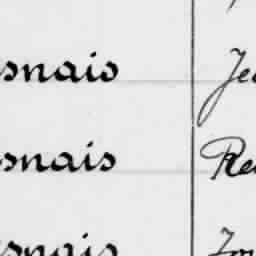 snais Je
snais Re
snais